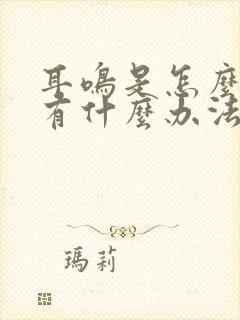 耳鸣是怎麼
有什麼办法
瑪莉